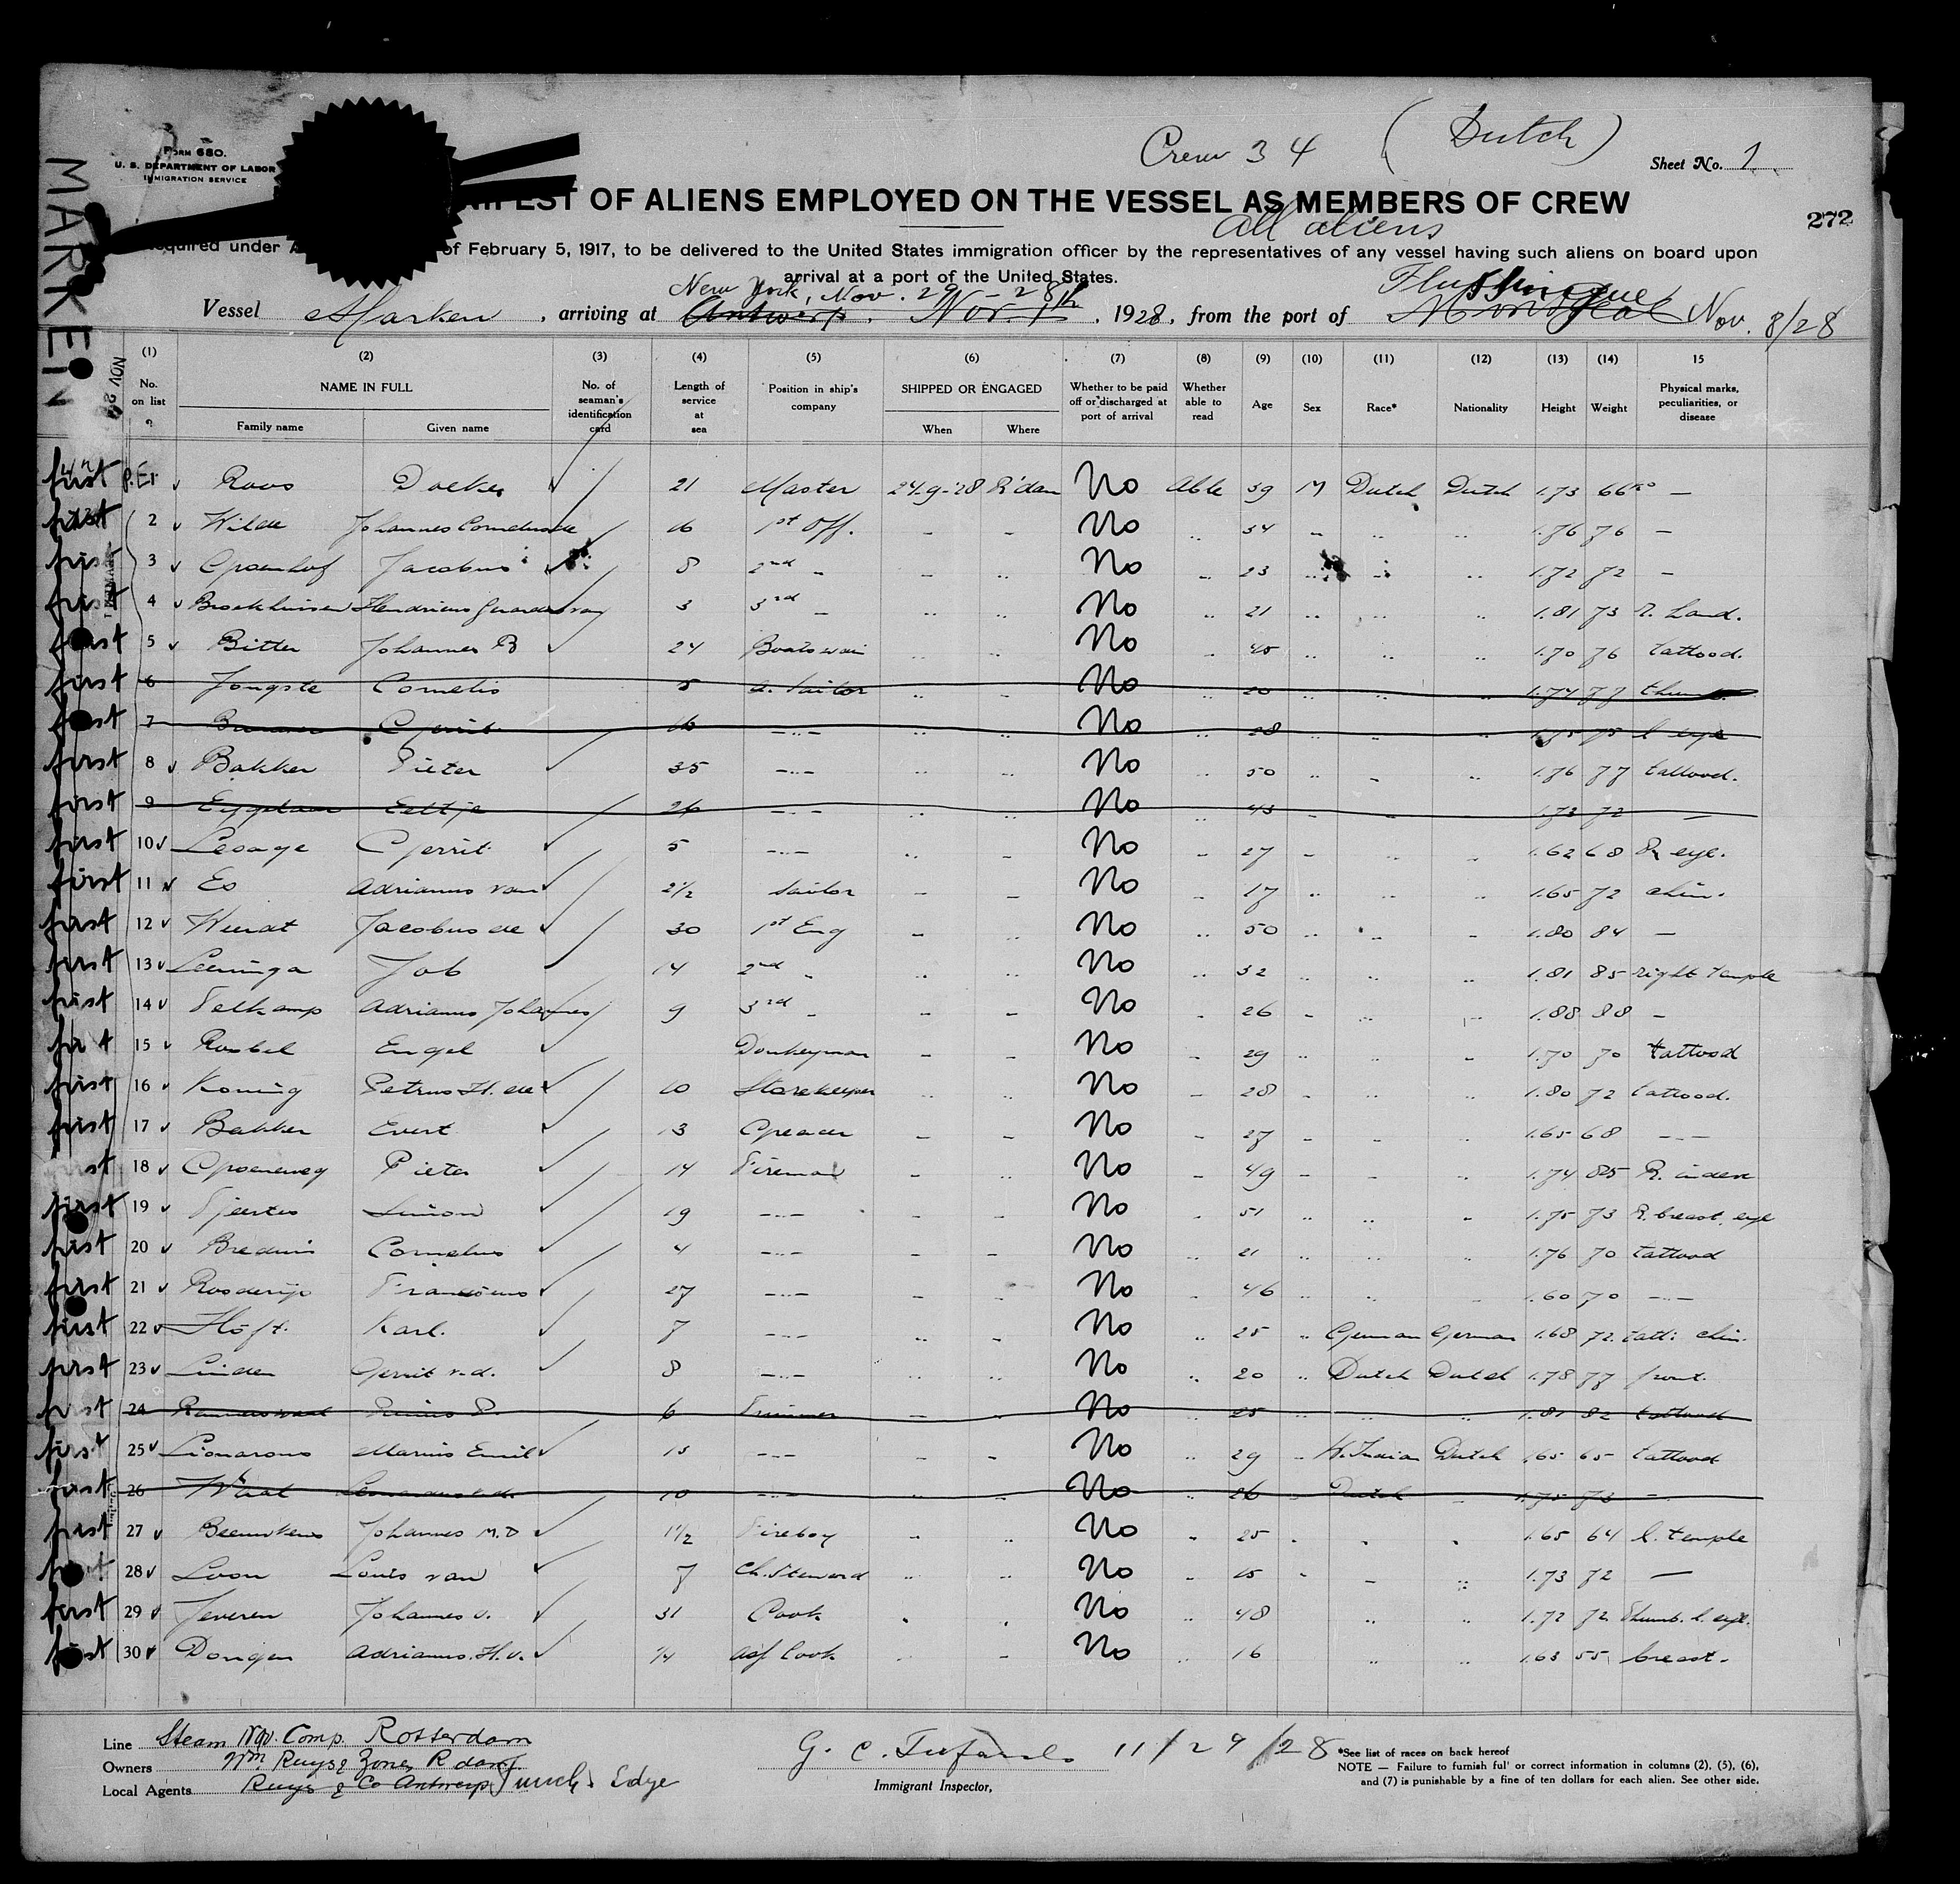 Crew 34 (Dutch)
FORM 680.
U. S. DEPARTMENT OF LABOR
IMMIGRATION SERVICE
Sheet No. 1
MARKEN
NIFEST OF ALIENS EMPLOYED ON THE VESSEL AS MEMBERS OF CREW
272
All aliens
equired under A of February 5, 1917, to be delivered to the United States immigration officer by the representatives of any vessel having such aliens on board upon
arrival at a port of the United States.
New York, Nov. 29 - 28 Flushingue
Vessel Marken, arriving at Antwerp, Nov. 1th, 1928, from the port of Montreal Nov. 8/28
NOV 29
(1) (2) (3) (4) (5) (6) (7) (8) (9) (10) (11) (12) (13) (14) 15
No. on list NAME IN FULL Family name Given name No. of seaman's identification card Length of service at sea Position in ship's company SHIPPED OR ENGAGED When Where Whether to be paid off or discharged at port of arrival Whether able to read Age Sex Race* Nationality Height Weight Physical marks, peculiarities, or disease
first 1 Roos Doekes 21 Master 24-9-28 R'dam No Able 39 M Dutch Dutch 1.73 66 —
first 2 Wilde Johannes Cornelis de 16 1st Off. No 34 1.76 76 —
first 3 Groenhof Jacobus 8 2nd No 23 1.72 72 —
first 4 Broekhuisen Hendricus Gerardus van 3 3rd No 21 1.81 73 r. hand.
first 5 Bitter Johannes B 24 Boatswain No 45 1.70 76 tattood.
first 6 Jongste Cornelis 5 a. Sailor No 20 1.74 77
first 7 Gerrit 16 No 28 1.75 75 l eye
first 8 Bakker Pieter 35 No 50 1.76 77 tattood.
first 9 Eeltje 26 No 43 1.73 72 —
first 10 Lesage Gerrit 5 No 27 1.62 68 R eye.
first 11 Es Adrianus van 2½ Sailor No 17 1.65 72 chin.
first 12 Weerdt Jacobus de 30 1st Eng No 50 1.80 84 —
first 13 Leeninga Job 14 2nd No 32 1.81 85 right temple
first 14 Velkamp Adrianus Johannes 9 3rd No 26 1.88 88 —
first 15 Rosbel Engel Donkeyman No 29 1.70 70 tattood
first 16 Koning Petrus H. de 10 Storekeeper No 28 1.80 72 tattood.
first 17 Bakker Evert 13 Greaser No 27 1.65 68
first 18 Groeneweg Pieter 14 Fireman No 49 1.74 85 R. index
first 19 Tjeertes Simon 19 No 51 1.75 73 R. breast. eye
first 20 Breduis Cornelius 4 No 21 1.76 70 tattood
first 21 Roosderijs Fransiscus 27 No 46 1.60 70
first 22 Höft. Karl. 7 No 25 German German 1.68 72 tatt: chin.
first 23 Linden Gerrit v.d. 8 No 20 Dutch Dutch 1.78 77 front.
first 24 6 Trimmer No 25 1.81 82 tattood
first 25 Lionarons Marius Emil 15 No 29 W. Indian Dutch 1.65 65 tattood
first 26 Waal Leonardus v.d. 10 No 26 Dutch 1.75 73 —
first 27 Beemkens Johannes M.D 1½ Fireboy No 25 1.65 64 l. temple
first 28 Loon Louis van 7 Ch. Steward No 25 1.73 72 —
first 29 Zeveren Johannes v. 31 Cook No 48 1.72 72 Thumb. l. eye.
first 30 Dongen Adrianus. H. v. ¼ Ass Cook No 16 1.63 55 breast.
Line Steam Nav. Comp. Rotterdam
Owners Wm. Ruys & Zonen R'dam
Local Agents Ruys & Co Antwerp Funch Edye
G. C. 11/29/28
Immigrant Inspector,
*See list of races on back hereof
NOTE — Failure to furnish ful' or correct information in columns (2), (5), (6),
and (7) is punishable by a fine of ten dollars for each alien. See other side.